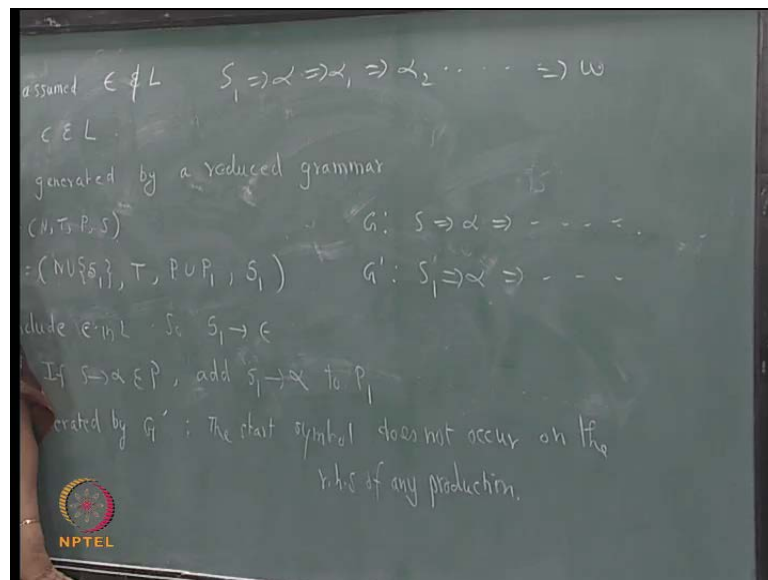 assumed ϵ ∉ L S₁ ⇒ α ⇒ α₁ ⇒ α₂ ..... ⇒ ω
ϵ ∈ L.
generated by a reduced grammar
(N, T, P, S) G: S ⇒ α ⇒ - - - -.
= (N ∪ {S₁}, T, P ∪ P₁, S₁) G': S₁' ⇒ α ⇒ - - -
clude ϵ in L So S₁ → ϵ
If S → α ∈ P, add S₁ → α to P₁
erated by G' : The start symbol does not occur on the
r.h.s of any production.
NPTEL